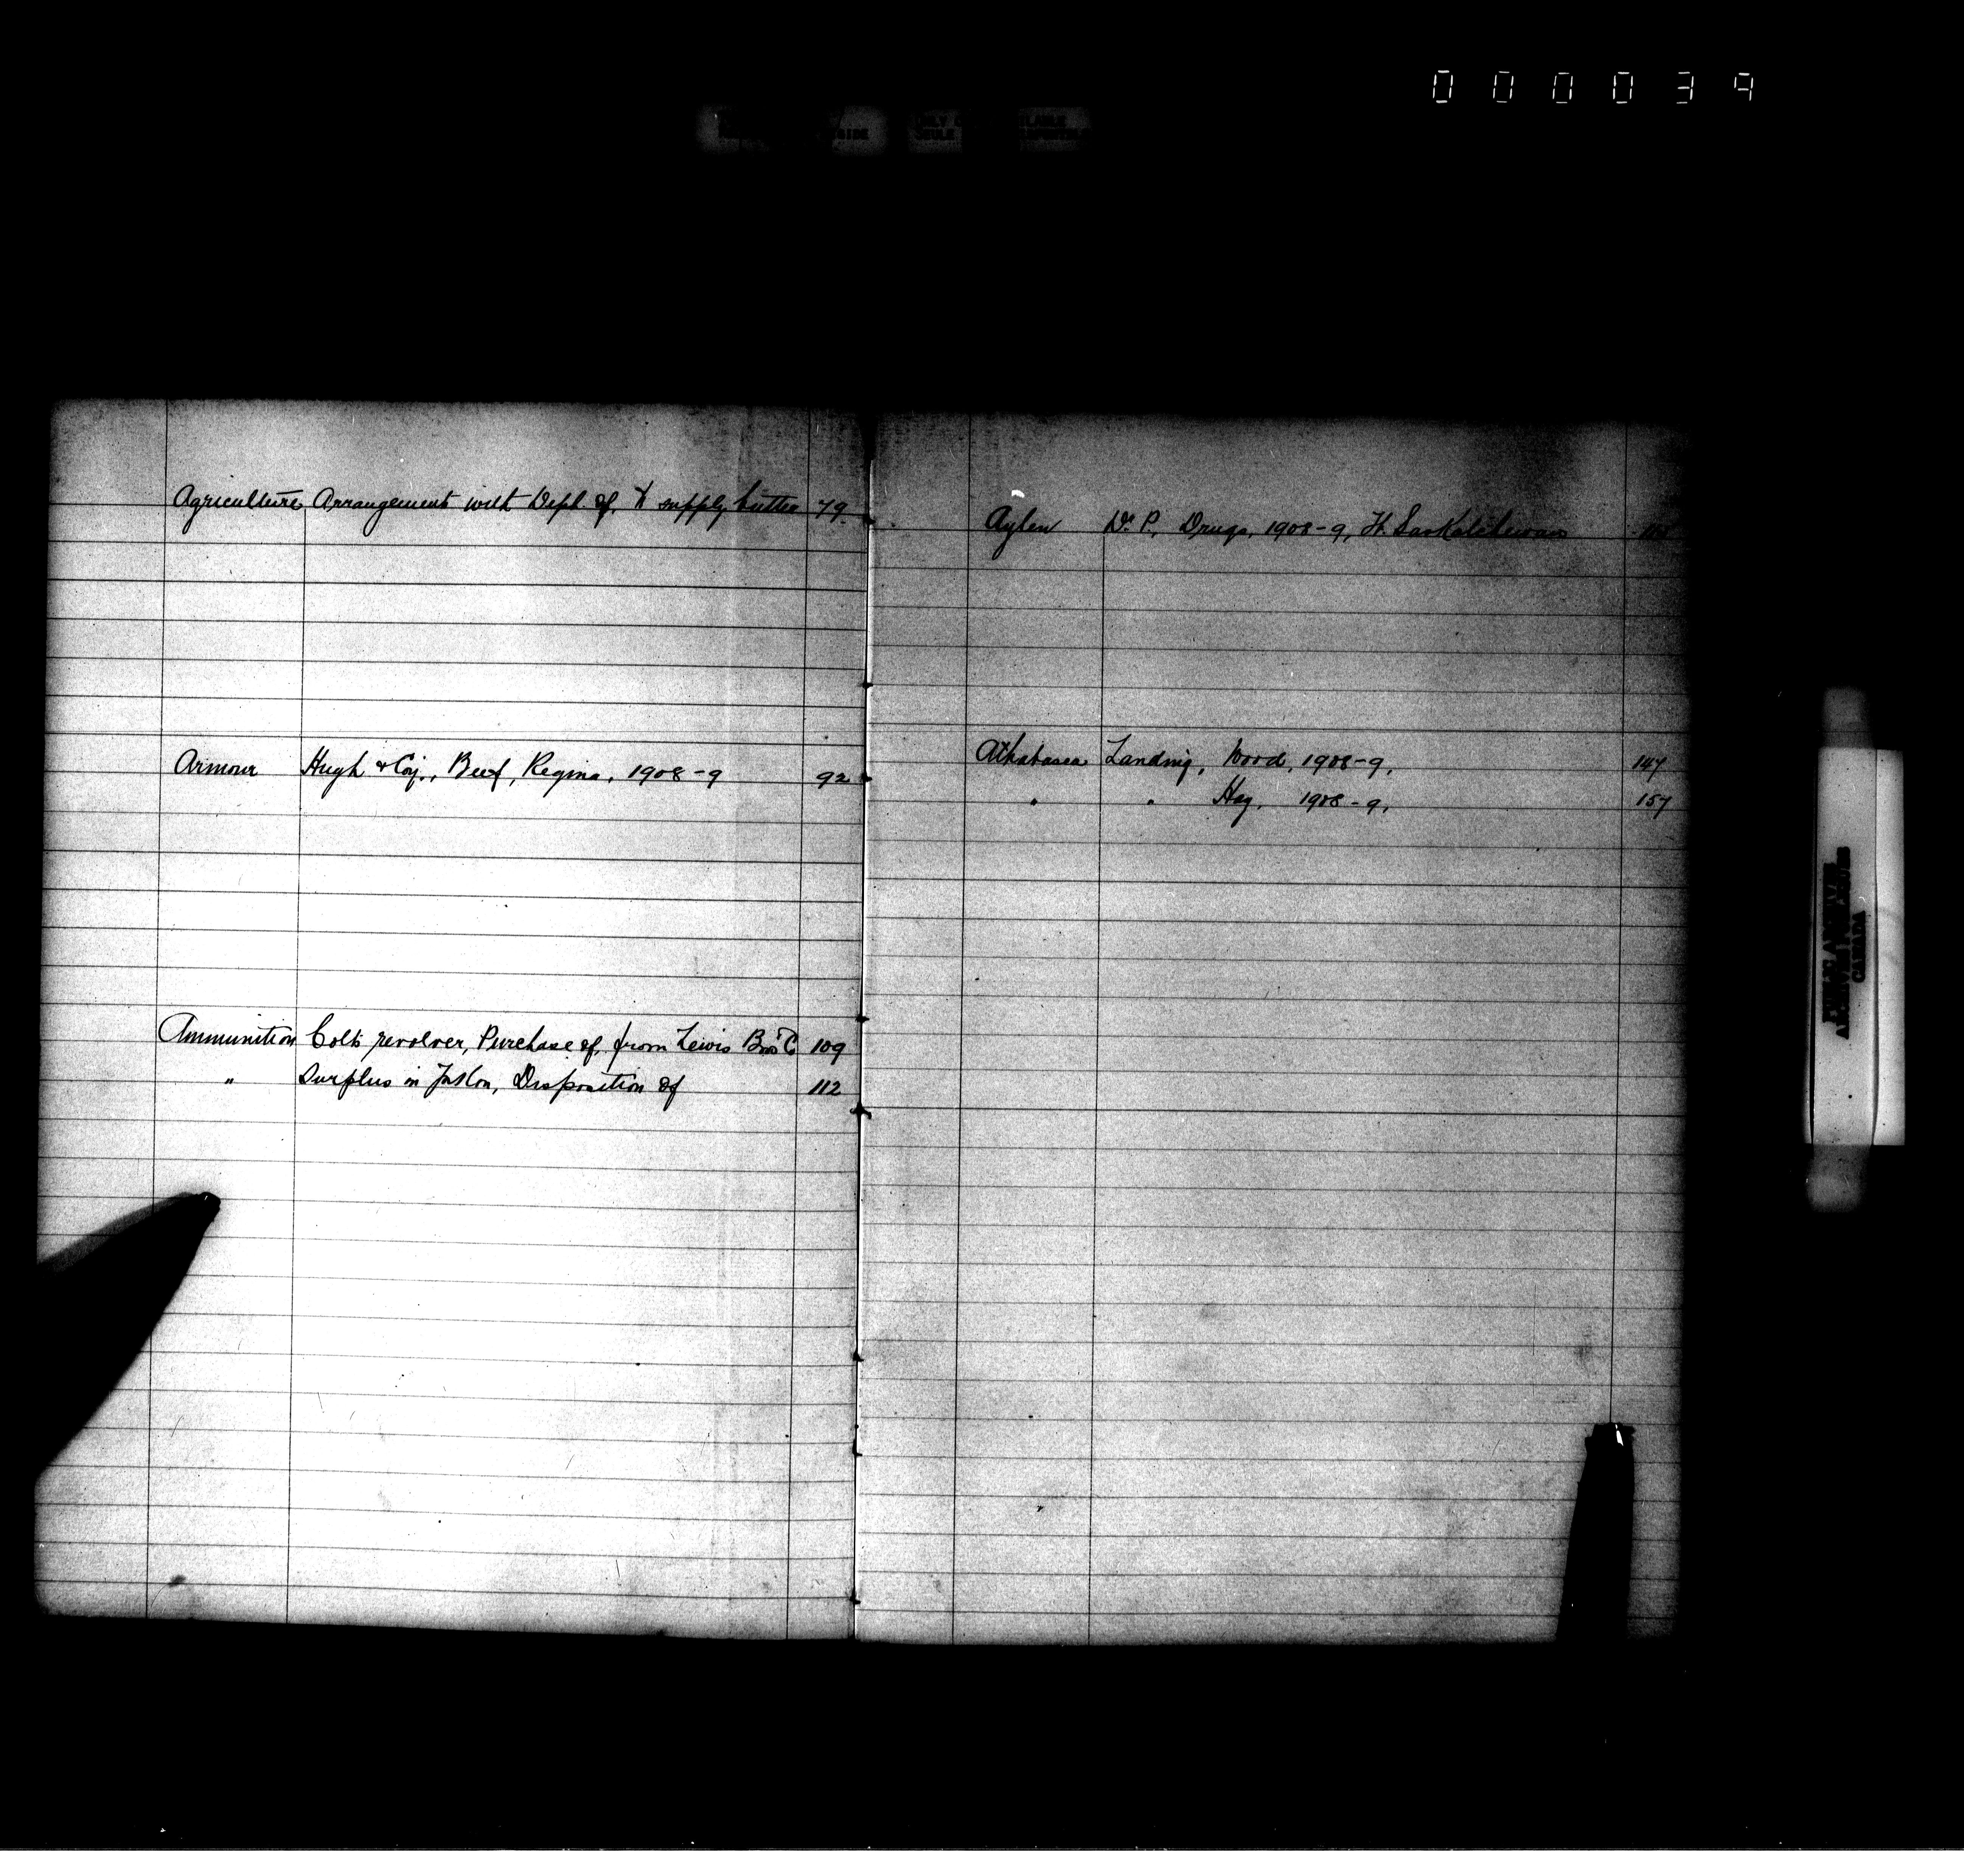 000039
Agriculture Arrangement with Dept. of, to supply butter 79
Armour Hugh & Coy., Beef, Regina, 1908-9 92
Ammunition Colts revolver, Purchase of, from Lewis Bros Co 109
" Surplus in Yukon, Disposition of 112
Aylen Dr. P., Drugs, 1908-9, Ft. Saskatchewan
Athabasca Landing, Wood, 1908-9, 147
" " Hay, 1908-9, 157
ARCHIVES
CANADA